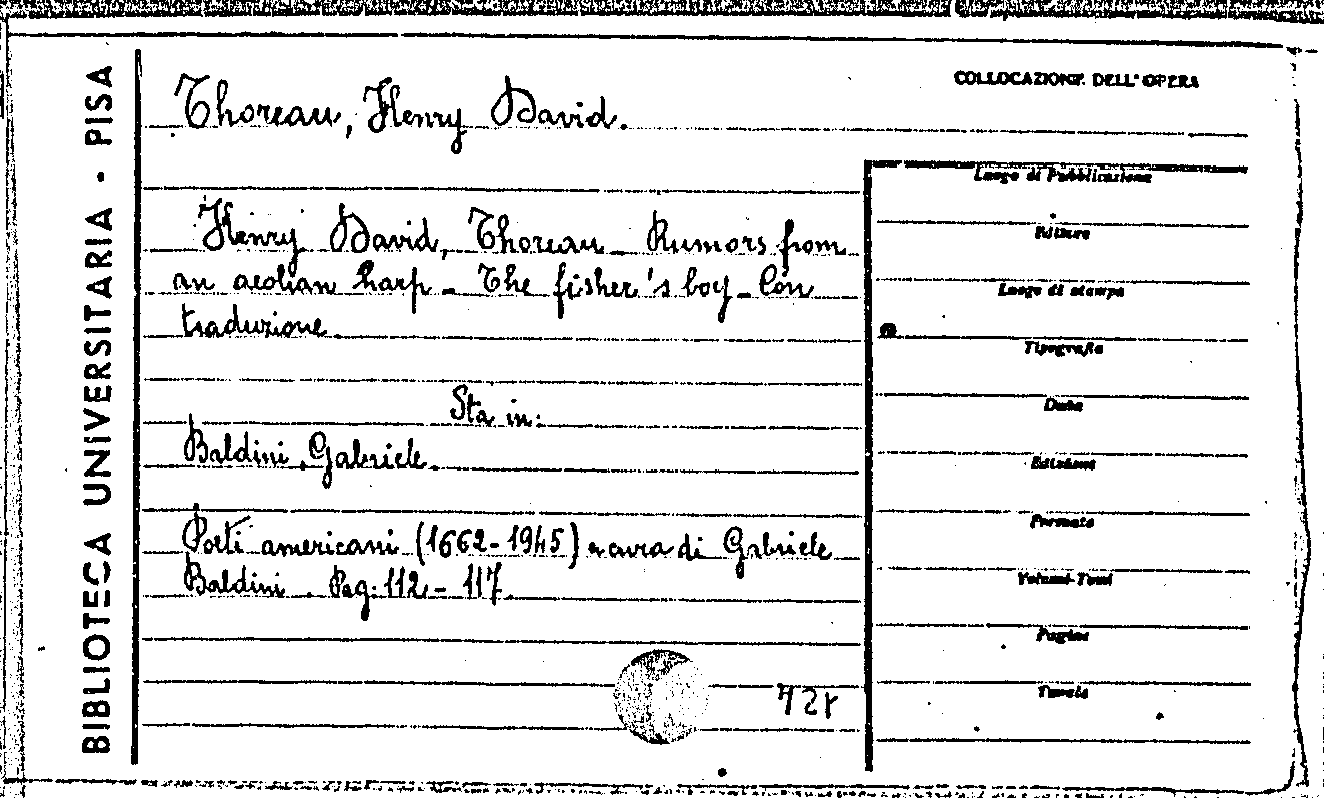 BIBLIOTECA UNIVERSITARIA - PISA
COLLOCAZIONE DELL'OPERA
Thoreau, Henry David.
Henry David, Thoreau - Rumors from
an aeolian harp - The fisher's boy - Con
traduzione.
Sta in:
Baldini, Gabriele.
Poeti americani (1662-1945) a cura di Gabriele
Baldini. Pag: 112 - 117.
Luogo di Pubblicazione
Editore
Luogo di stampa
Tipografia
Data
Edizione
Formato
Volumi-Tomi
Pagine
Tavole